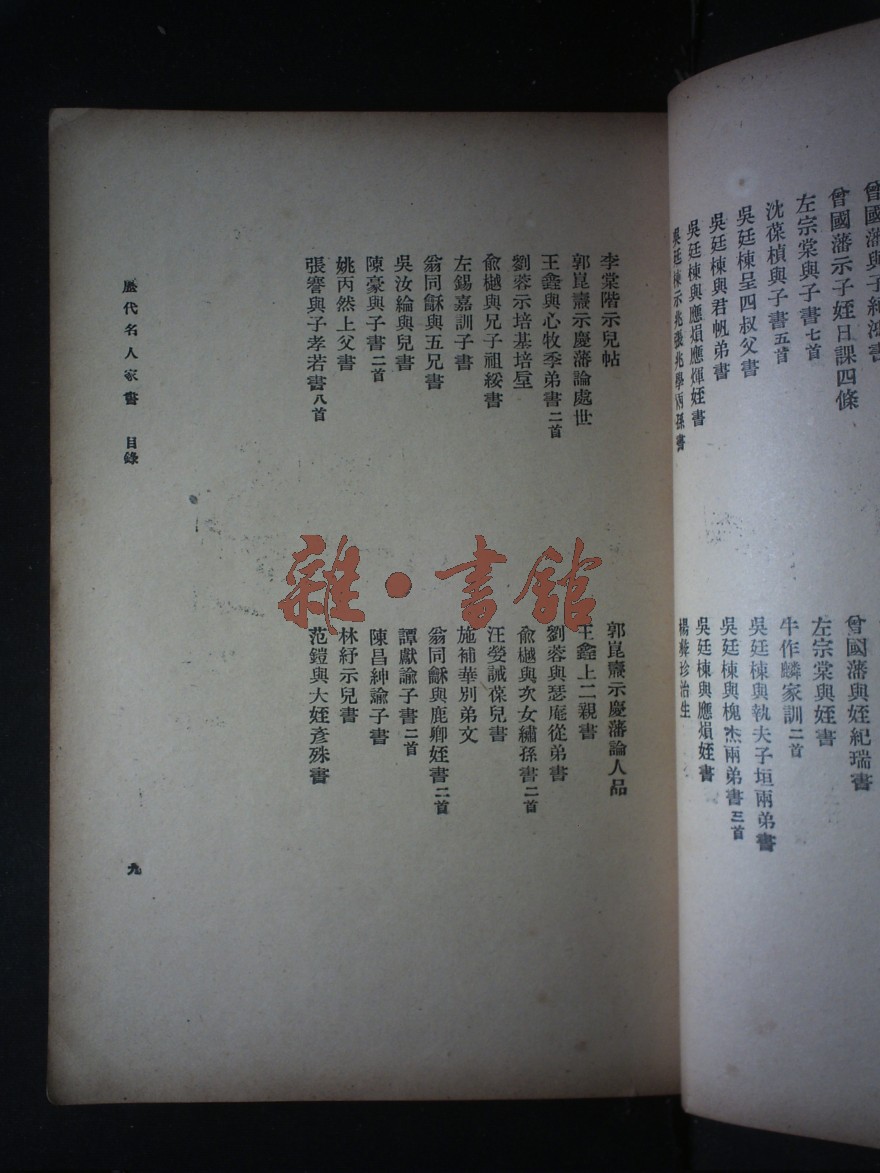 曾國藩與子紀鴻書
曾國藩示子姪日課四條
曾國藩與姪紀瑞書
左宗棠與子書七首
左宗棠與姪書
沈葆楨與子書五首
牛作麟家訓二首
吳廷棟呈四叔父書
吳廷棟與執夫子垣兩弟書
吳廷棟與君帆弟書
吳廷棟與槐杰兩弟書三首
吳廷棟與應娟應煇姪書
吳廷棟與應娟姪書
吳廷棟示兆張兆學兩孫書
楊彝珍治生
李棠階示兒帖
郭崑燾示慶藩論人品
郭崑燾示慶藩論處世
王鑫上二親書
王鑫與心牧季弟書二首
劉蓉與瑟庵從弟書
劉蓉示培基培垕
俞樾與次女繡孫書二首
俞樾與兄子祖綏書
汪嫈誡葆兒書
左錫嘉訓子書
施補華別弟文
翁同龢與五兄書
翁同龢與鹿卿姪書二首
吳汝綸與兒書
譚獻諭子書二首
陳豪與子書二首
陳昌紳諭子書
姚丙然上父書
林紓示兒書
張謇與子孝若書八首
范鎧與大姪彥殊書
歷代名人家書 目錄
九
雜·書館